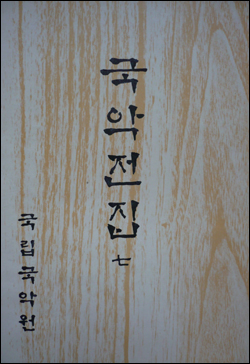 국악전집 七
국립국악원